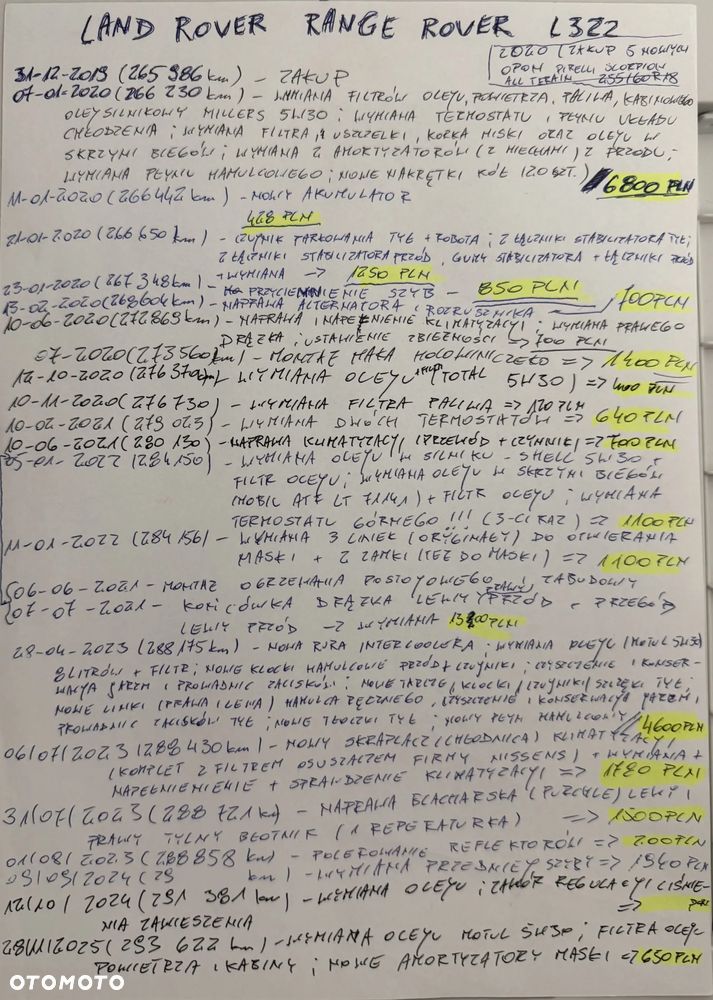 LAND ROVER RANGE ROVER L322
2020 (ZAKUP 5 NOWYCH
OPON PIRELLI SCORPION
ALL TERRAIN 255+60R18
31-12-2019 (265 986 km) - ZAKUP
07-01-2020 (266 230 km) - WYMIANA FILTRÓW OLEJU, POWIETRZA, PALIWA, KABINOWEGO
OLEJ SILNIKOWY MILLERS 5W30; WYMIANA TERMOSTATU I PŁYNU UKŁADU
CHŁODZENIA; WYMIANA FILTRA, USZCZELKI, KORKA MISKI ORAZ OLEJU W
SKRZYNI BIEGÓW; WYMIANA 2 AMORTYZATORÓW (Z MIECHAMI) Z PRZODU;
WYMIANA PŁYNU HAMULCOWEGO; NOWE NAKRĘTKI KÓŁ (20 SZT.) 6800 PLN
11-01-2020 (266 442 km) - NOWY AKUMULATOR
428 PLN
21-01-2020 (266 650 km) - CZUJNIK PARKOWANIA TYŁ + ROBOTA; 2 ŁĄCZNIKI STABILIZATORA TYŁ;
2 ŁĄCZNIKI STABILIZATORA PRZÓD, GUMY STABILIZATORA + ŁĄCZNIKI PRZÓD
+ WYMIANA → 1250 PLN
23-01-2020 (267 348 km) - PRZYCIEMNIENIE SZYB - 850 PLN
13-02-2020 (268 604 km) - NAPRAWA ALTERNATORA I ROZRUSZNIKA 700 PLN
10-06-2020 (272 869 km) - NAPRAWA I NAPEŁNIENIE KLIMATYZACJI; WYMIANA PRAWEGO
DRĄŻKA; USTAWIENIE ZBIEŻNOŚCI => 700 PLN
07-2020 (273 560 km) - MONTAŻ HAKA HOLOWNICZEGO => 1400 PLN
12-10-2020 (276 370 km) - WYMIANA OLEJU (TOTAL 5W30) => 400 PLN
10-11-2020 (276 730) - WYMIANA FILTRA PALIWA => 120 PLN
10-02-2021 (279 023) - WYMIANA DWÓCH TERMOSTATÓW => 640 PLN
10-06-2021 (280 130) - NAPRAWA KLIMATYZACJI (PRZEWÓD + CZYNNIK) => 700 PLN
05-01-2022 (284 150) - WYMIANA OLEJU W SILNIKU - SHELL 5W30 +
FILTR OLEJU; WYMIANA OLEJU W SKRZYNI BIEGÓW
(MOBIL ATF LT 71141) + FILTR OLEJU; WYMIANA
TERMOSTATU GÓRNEGO !!! (3-CI RAZ) => 1100 PLN
11-01-2022 (284 156) - WYMIANA 3 LINEK (ORYGINAŁY) DO OTWIERANIA
MASKI + 2 ZAMKI (TEŻ DO MASKI) => 1100 PLN
06-06-2021 - MONTAŻ OGRZEWANIA POSTOJOWEGO I ZABUDOWY
07-07-2021 - KOŃCÓWKA DRĄŻKA LEWY PRZÓD + PRZEGUB
LEWY PRZÓD → Z WYMIANĄ PLN
28-04-2023 (288 175 km) - NOWA RURA INTERCOOLERA; WYMIANA OLEJU (MOTUL 5W30)
8 LITRÓW + FILTR; NOWE KLOCKI HAMULCOWE PRZÓD + CZUJNIKI; CZYSZCZENIE I KONSER-
WACJA JARZM I PROWADNIC ZACISKÓW; NOWE TARCZE, KLOCKI, CZUJNIKI, SZCZĘKI TYŁ;
NOWE LINKI (PRAWA I LEWA) HAMULCA RĘCZNEGO, CZYSZCZENIE I KONSERWACJA JARZM I
PROWADNIC ZACISKÓW TYŁ; NOWE TŁOCZKI TYŁ; NOWY PŁYN HAMULCOWY 4600 PLN
06/07/2023 (288 430 km) - NOWY SKRAPLACZ (CHŁODNICA) KLIMATYZACJI
(KOMPLET Z FILTREM OSUSZACZEM FIRMY NISSENS) + WYMIANA +
NAPEŁNIENIE + SPRAWDZENIE KLIMATYZACJI => 1780 PLN
31/07/2023 (288 721 km) - NAPRAWA BLACHARSKA (PURCHLE) LEWY I
PRAWY TYLNY BŁOTNIK (1 REPERATURKA) => 1500 PLN
01/08/2023 (288 858 km) - POLEROWANIE REFLEKTORÓW => 200 PLN
09/09/2024 (29 km) - WYMIANA PRZEDNIEJ SZYBY => 1940 PLN
12/10/2024 (291 381 km) - WYMIANA OLEJU; ZAWÓR REGULACYJ CIŚNIE-
NIA ZAWIESZENIA =>
28/11/2025 (293 622 km) - WYMIANA OLEJU MOTUL 5W30; FILTRA OLEJU
POWIETRZA I KABINY; NOWE AMORTYZATORY MASKI => 650 PLN
OTOMOTO